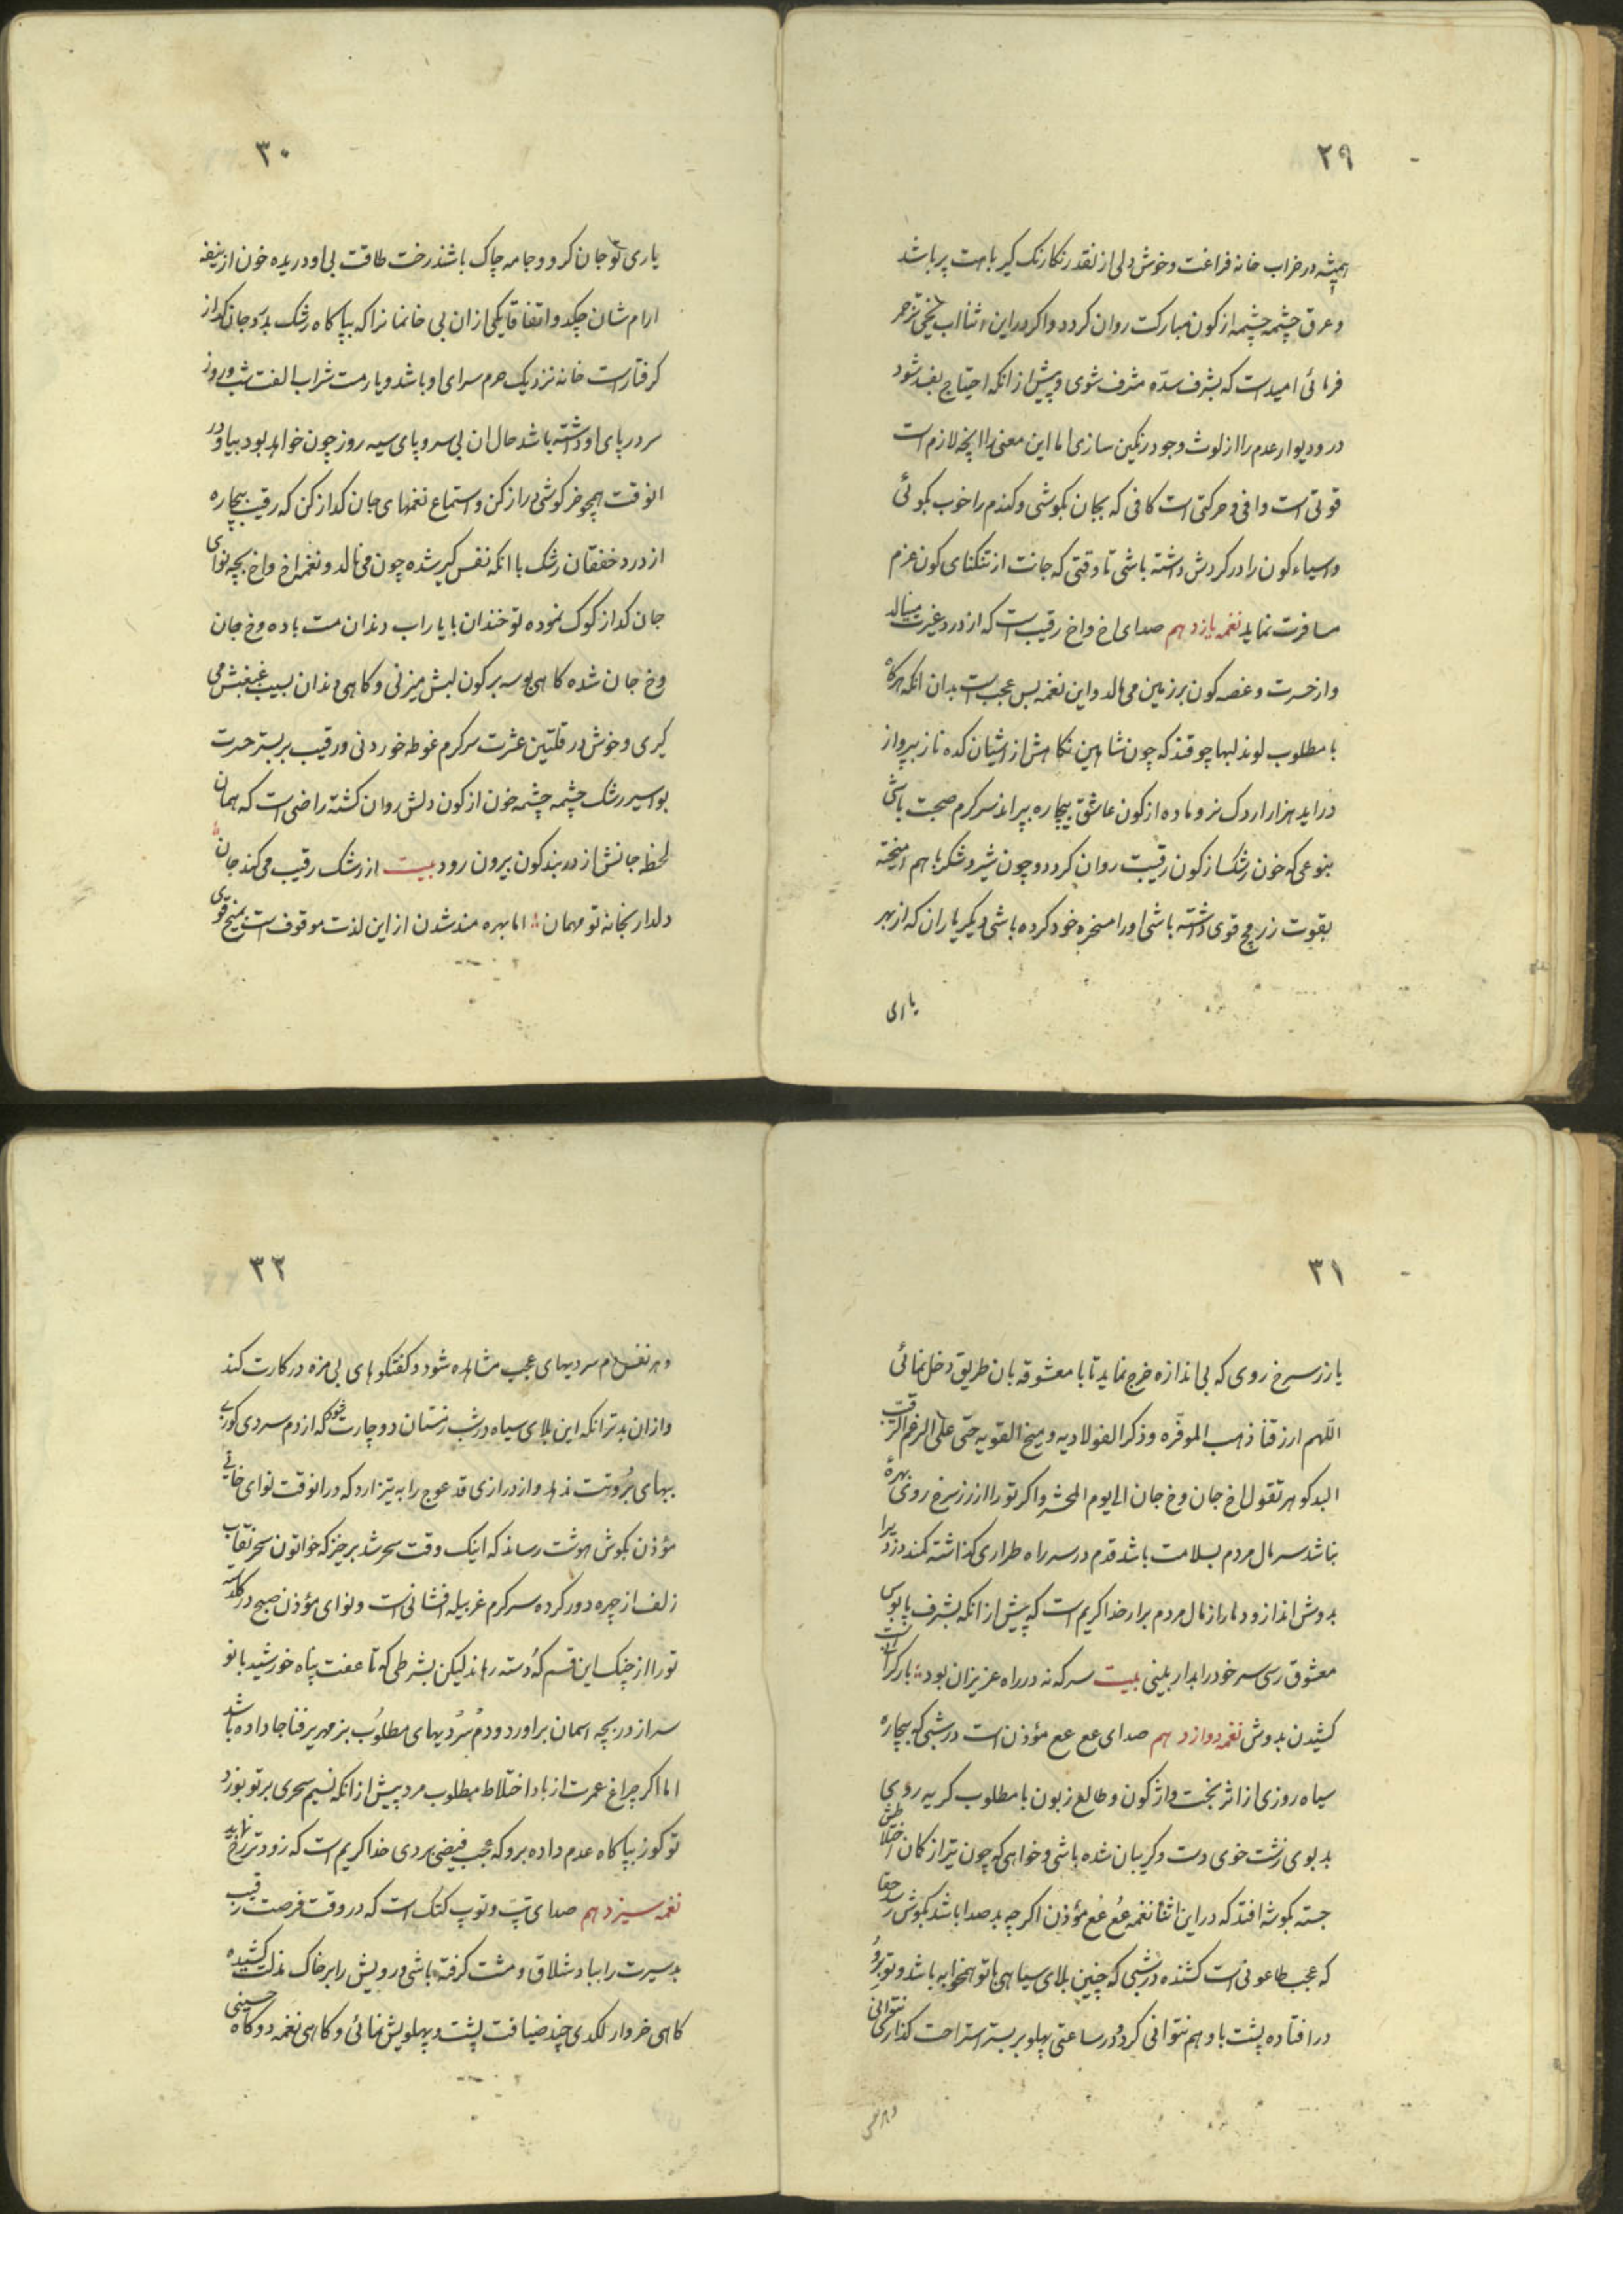 ۲۹
همیشه در خراب خانه فراغت و خوش دلی از نقد رنکارنک کیر بامت پر باشد
و عرق چشمه چشمه از کون مبارکت روان کردد و اکر در این اثنا اب یخی تزحر
فرمائی امیدست که بشرف سدّه مشرف شوی و پیش از انکه احتیاج بفصد شود
در و دیوار عدم را از لوث وجود رنکین سازی اما این معنی را انچه لازم است
قوتی است وافی و حرکتی است کافی که بجان بکوشی و کندم را خوب بکوئی
و اسیاء کون را در کردش داشته باشی تا وقتی که جانت از تنکنای کون عزم
مسافرت نماید نغمه یازدهم صدای اخ واخ رقیب است که از درد غیرت مینالد
و از حسرت و غصه کون بر زمین می مالد و این نغمه بس عجب است بدان انکه هرکاه
با مطلوب لوند لبها چو قند که چون شاهین نکاهش از اشیان کده ناز بپرواز
دراید هزار اردک نر و ماده از کون عاشق بیچاره بپراند سرکرم صحبت باشی
بنوعی که خون رشک از کون رقیبت روان کردد و چون شیر و شکر با هم امیخته
بقوت زر مخ قوی داشته باشی و او را مسخره خود کرده باشی دیکر یاران که از بهر
یاری
۳۰
یاری تو جان کرو و جامه چاک باشند رخت طاقت بی او دریده خون از نیفه
ارام شان چکد و اتفاقا یکی از ان بی خانمانرا که بپاکاه رشک بدرد جان کداز
کرفتار است خانه نزدیک حرم سرای او باشد و یار مست شراب الفت شب و روز
سر در پای او داشته باشد حال ان بی سر و پای سیه روز چون خواهد بود بیا و در
انوقت همچو خر کوشی دراز کن و استماع نغمهای جان کداز کن که رقیب بیچاره
از درد خفقان رشک با انکه نفس کیر شده چون می نالد و نغمه اخ واخ بچه نوای
جان کداز کوک نموده تو خندان با یار اب دندان مست باده وخ جان
وخ جان شده کاهی بوسه بر کون لبش میزنی و کاهی دندان بسیب غبغبش می
کیری و خوش در قلتین عشرت سرکرم غوطه خوردنی و رقیب بر بستر حسرت
بواسیر رشک چشمه چشمه خون از کون دلش روان کشته راضی است که همان
لحظه جانش از دربند کون بیرون رود بیت از رشک رقیب می کند جان
دلدار بخانه تو مهمان اما بهره مند شدن از این لذت موقوف است بمیخ قوی
۳۱
یا زر سرخ روی که بی اندازه خرج نماید تا با معشوقه بان طریق دخل نمائی
اللّهم ارزقنا ذهب الموفّره و ذکر الفولادیه و میخ القویه حتی علی الرغم الرقیب
البدکوهر تقول اخ جان وخ جان الی یوم المحشر و اکر تو را از زر سرخ روی بهرهٔ
نباشد سر مال مردم بسلامت باشد قدم در سر راه طراری کذاشته کمند دزدیرا
بدوش انداز و دمار از مال مردم برار خدا کریم است که پیش از انکه بشرف پابوس
معشوق رسی سر خود را بدار بلینی بیت سر که نه در راه عزیزان بود بار کرانیست
کشیدن بدوش نغمه دوازدهم صدای عع عع مؤذن است در شبی که بیچاره
سیاه روزی از اثر بخت واژکون و طالع زبون با مطلوب کریه روی
بد بوی زشت خوی دست و کریبان شده باشی و خواهی که چون تیر از کمان اختلاطش
جسته بکوشه افتد که در این اثنا نغمه عُع عُع مؤذن اکرچه بد صدا باشد بکوش رسد حقا
که عجب طاعونی است کشنده در شبی که چنین بلای سیاهی با تو همخوابه باشد و تو بروُ
در افتاده پشت باو هم نتوانی کرد و در ساعتی پهلو بر بستر استراحت کذار نتوانی
و هر نفس
۳۲
و هر نفس دم سردیهای عجب مشاهده شود و کفتکوهای بی مزه در کارت کند
و از ان بدتر انکه این بلای سیاه در شب زمستان دوچارت شود که از دم سردی کوز
بیهای بُروتت ندهد و از درازی قد عوج را به تیز ارد که در انوقت نوای خانی
مؤذن بکوش هوشت رساند که اینک وقت سحر شد برخیز که خواتون سحر نقاب
زلف از چهره دور کرده سرکرم غربیله افشانی است و نوای مؤذن صبح در کلدسته
تو را از چنک این قسم کُه دسته رهاند لیکن بشرطی که تا عفت پناه خورشید بانو
سر از دریچه اسمان براورد و دمُ سردیهای مطلوب بزمهریر فنا جا داده باشد
اما اکر چراغ عمرت از باد اختلاط مطلوب مرد پیش از انکه نسیم سحری بر تو بوزد
تو کوز بپاکاه عدم داده برو که عجب فیضی بردی خدا کریم است که زودتر رخ نماید
نغمه سیزدهم صدای تپَ و توپ کتک است که در وقت فرصت رقیب
بد سیرت را بباد شلاق و مشت کرفته باشی و رویش را بر خاک مذلت کشیده
کاهی خروار لکدی چند ضیافت پشت و پهلویش نمائی و کاهی نغمه دوکاه حسینی